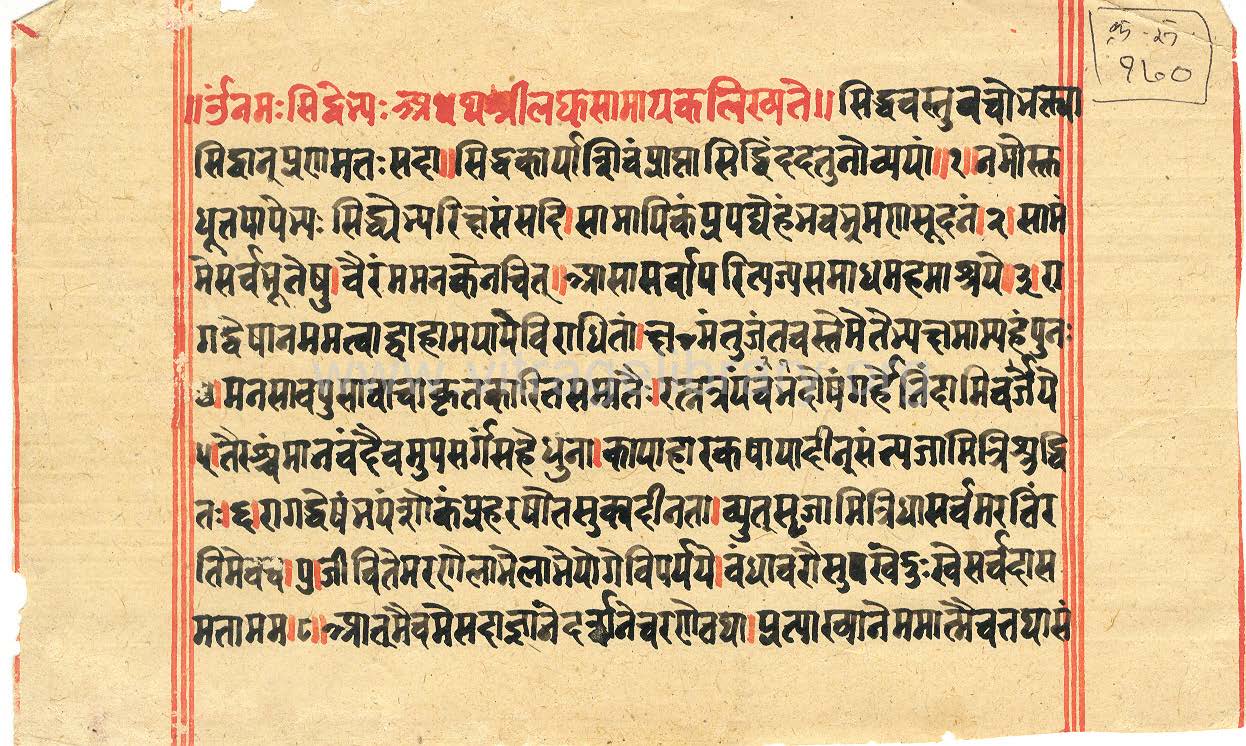 क्रु. नं.
१७०
॥र्ठंनमः सिद्धेभ्यः अथ श्रीलघुसामायकलिख्यते॥ सिद्धवस्तुवचोभक्त्या
सिद्धान् प्रणामतः सदा॥ सिद्धकार्याशिवंप्राप्ता सिद्धिंददतुनोव्ययां॥१॥नमोस्क्त
धूतपापेभ्यः सिद्ध्येभ्यरिच्चसंसदि। सामायिकंप्रपद्येहंभवभ्रमणसूदनं।२।साम्यं
मेसर्वभूतेषु।वैरंममनकेनचित्॥आसासर्वापरित्यज्यसमाधमहमाश्रये॥३।रा
गद्वेषानममत्वाद्वाहामयायेविराधितां।क्षाम्यंतुजंतवस्तेमेतेभ्यक्षमाम्यहंपुनः
४।मनसावपुसावाचाकृतकारितसंमतैः।रत्नत्रयंभवंदोषंगर्हेनिंदामिवर्जये
५।तैरश्चंमानवंदैवमुपसर्गंसहेधुना।कायाहारकषायादीन्संत्यजामित्रिशुद्धि
तः।६।रागद्वेषंभयंशोकंप्रहरषौतसुक्यदीनता।व्युत्सृजामित्रिधासर्वमरतिंर
तिमेवच।७।जीवितेमरणेलाभेलाभेयोगेविपर्यये।बंधावरौसुखेदुःखेसर्वदास
मतामम।८॥आत्मैवमेसदाज्ञानेदर्शनेचरणेतथा।प्रत्याख्यानेममात्मैवतथासं
www.vitragelibrary.org